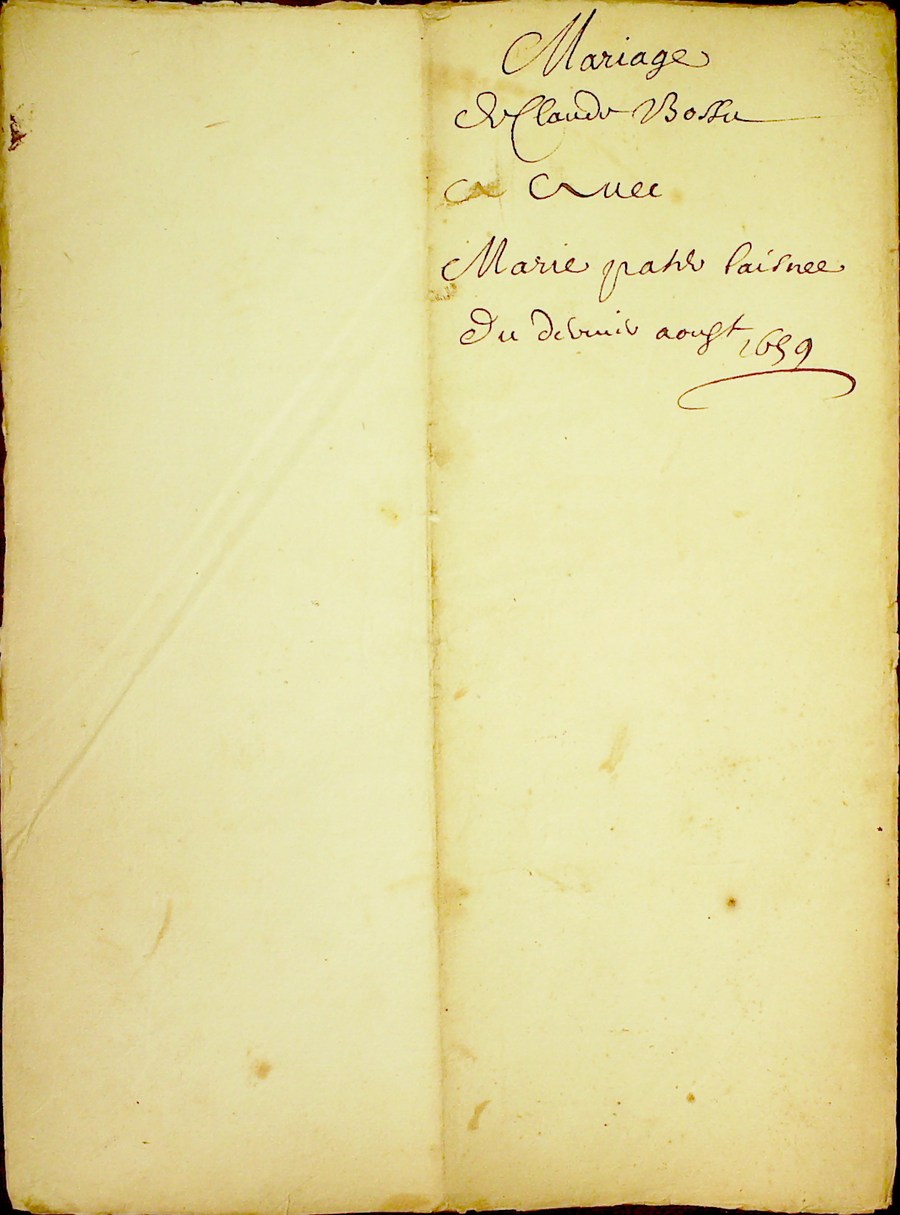 Mariage
de Claude Bossu
Avec
Marie laisnee
Du dernier aoust 1659